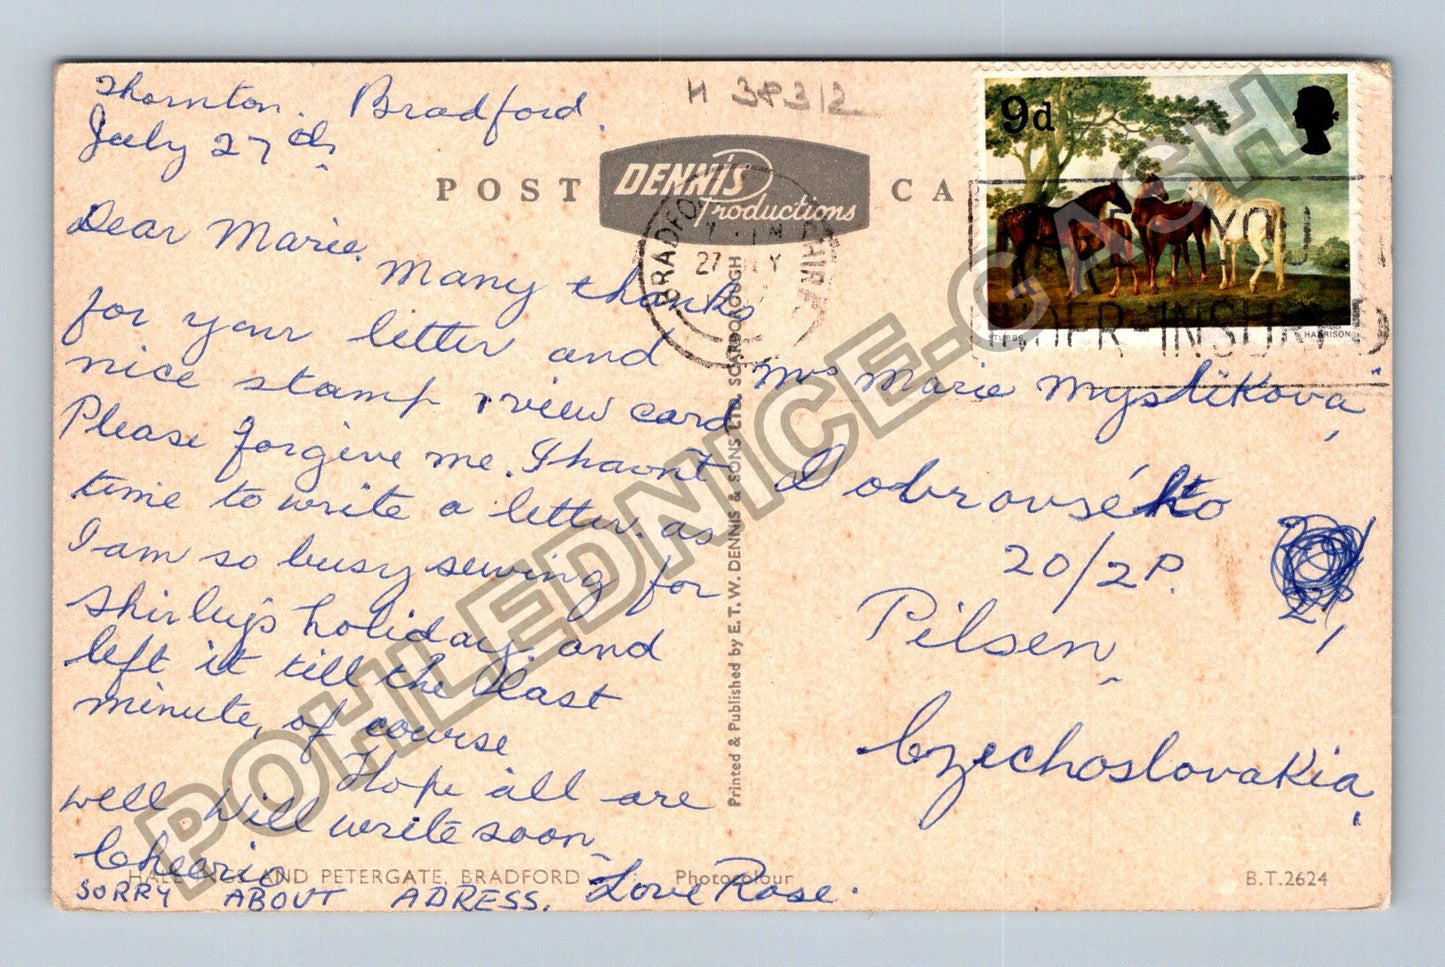 Thornton. Bradford.
July 27th
Dear Marie.
Many thanks
for your letter and
nice stamp & view card
Please forgive me. I havnt
time to write a letter. as
I am so busy sewing for
Shirley's holiday. and
left it till the last
minute, of course
Hope all are
well. Will write soon
Cheerio
Love Rose.
SORRY ABOUT ADRESS.
H 38312
POST CA
DENNIS
Productions
BRADFORD
27 JLY
9d
STUBBS HARRISON
YOU
UNDER-INSURED
Mrs Marie Myslikova,
Dobrovského
20/2P.
Pilsen,
Czechoslovakia,
Printed & Published by E. T. W. DENNIS & SONS LTD. SCARBOROUGH
AND PETERGATE, BRADFORD
Photocolour
B.T.2624
POHLEDNICE-GASH